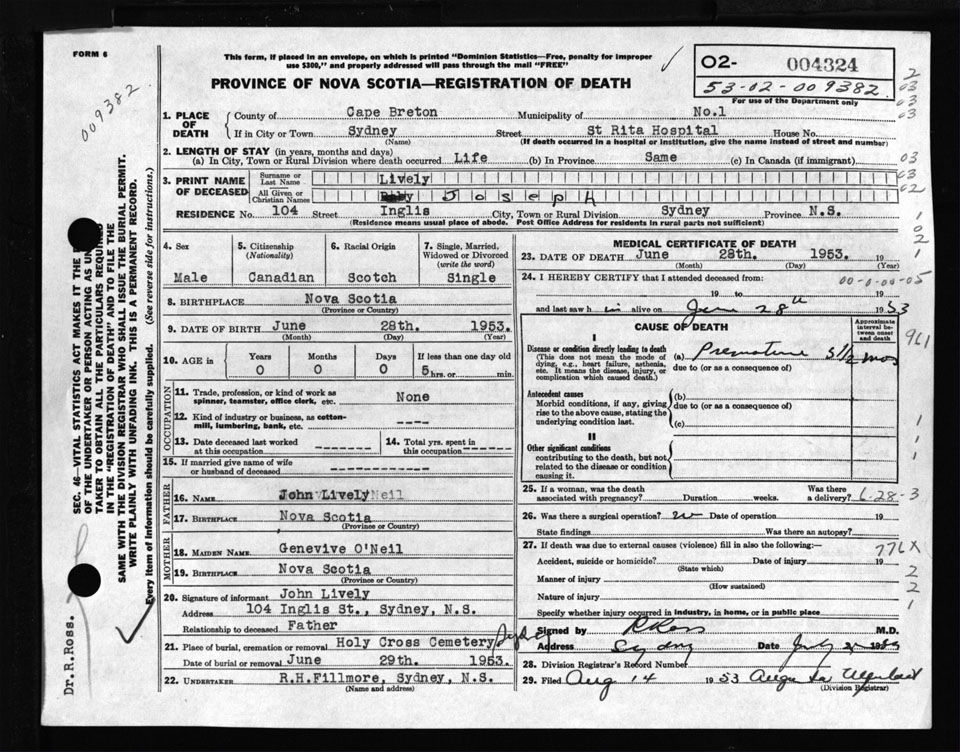 FORM 6
This form, if placed in an envelope, on which is printed "Dominion Statistics—Free, penalty for improper
use $300," and properly addressed will pass through the mail "FREE"
02- 004324
53-02-009382
For use of the Department only
009382
PROVINCE OF NOVA SCOTIA—REGISTRATION OF DEATH
1. PLACE OF DEATH
County of Cape Breton Municipality of No.1
If in City or Town Sydney Street St Rita Hospital House No.
(Name) (If death occurred in a hospital or institution, give the name instead of street and number)
2. LENGTH OF STAY (in years, months and days)
(a) In City, Town or Rural Division where death occurred Life (b) In Province Same (c) In Canada (if immigrant)
3. PRINT NAME OF DECEASED
Surname or Last Name Lively
All Given or Christian Names Joseph
RESIDENCE No. 104 Street Inglis City, Town or Rural Division Sydney Province N.S.
(Residence means usual place of abode. Post Office Address for residents in rural parts not sufficient)
4. Sex Male
5. Citizenship (Nationality) Canadian
6. Racial Origin Scotch
7. Single, Married, Widowed or Divorced (write the word) Single
8. BIRTHPLACE Nova Scotia
(Province or Country)
9. DATE OF BIRTH June 28th. 1953.
(Month) (Day) (Year)
10. AGE in Years Months Days If less than one day old
0 0 0 5 hrs. or min.
OCCUPATION
11. Trade, profession, or kind of work as spinner, teamster, office clerk, etc. None
12. Kind of industry or business, as cotton-mill, lumbering, bank, etc. ----
13. Date deceased last worked at this occupation ------
14. Total yrs. spent in this occupation ------
15. If married give name of wife or husband of deceased ----------
FATHER
16. NAME John Lively Neil
17. BIRTHPLACE Nova Scotia
(Province or Country)
MOTHER
18. MAIDEN NAME Genevive O'Neil
19. BIRTHPLACE Nova Scotia
(Province or Country)
20. Signature of informant John Lively
Address 104 Inglis St., Sydney, N.S.
Relationship to deceased Father
21. Place of burial, cremation or removal Holy Cross Cemetery Sydney
Date of burial or removal June 29th. 1953.
22. UNDERTAKER R.H.Fillmore, Sydney, N.S.
(Name and address)
MEDICAL CERTIFICATE OF DEATH
23. DATE OF DEATH June 28th. 1953.
(Month) (Day) (Year)
24. I HEREBY CERTIFY that I attended deceased from:
00-0-00-05
19 to 19
and last saw h im alive on June 28th 1953
CAUSE OF DEATH
Approximate interval between onset and death
I
Disease or condition directly leading to death
(This does not mean the mode of dying, e.g., heart failure, asthenia, etc. It means the disease, injury, or complication which caused death.)
(a) Premature 5 1/2 mos
due to (or as a consequence of)
Antecedent causes
Morbid conditions, if any, giving rise to the above cause, stating the underlying condition last.
(b)
due to (or as a consequence of)
(c)
II
Other significant conditions
contributing to the death, but not related to the disease or condition causing it.
25. If a woman, was the death associated with pregnancy? Duration weeks. Was there a delivery? 6-28-3
26. Was there a surgical operation? Date of operation 19
State findings Was there an autopsy?
27. If death was due to external causes (violence) fill in also the following:—
776X
Accident, suicide or homicide? Date of injury 19
(State which)
Manner of injury
(How sustained)
Nature of injury
Specify whether injury occurred in industry, in home, or in public place
Signed by R Ross M.D.
Address Sydney Date July
28. Division Registrar's Record Number
29. Filed Aug 14 1953
(Division Registrar)
961
SEC. 46—VITAL STATISTICS ACT MAKES IT THE
OF THE UNDERTAKER OR PERSON ACTING AS UN
TAKER TO OBTAIN ALL THE PARTICULARS REQUIRE
IN THE "REGISTRATION OF DEATH" AND TO FILE THE
SAME WITH THE DIVISION REGISTRAR WHO SHALL ISSUE THE BURIAL PERMIT.
WRITE PLAINLY WITH UNFADING INK. THIS IS A PERMANENT RECORD.
Every item of information should be carefully supplied. (See reverse side for instructions.)
Dr.R.Ross.